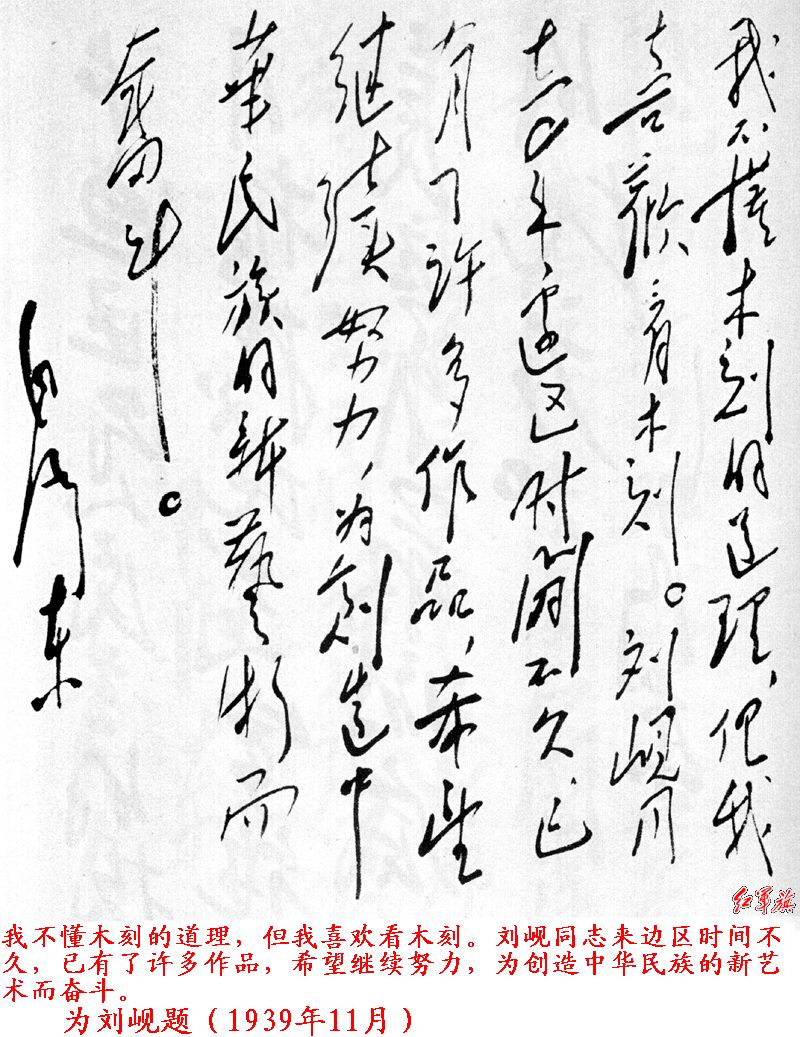 我不懂木刻的道理,但我
喜歡看木刻。刘峴同
志来邊区时間不久,已
有了许多作品,希望
继續努力,为創造中
華民族的新藝術而
奮斗。
毛泽东
红军旗
我不懂木刻的道理，但我喜欢看木刻。刘岘同志来边区时间不
久，已有了许多作品，希望继续努力，为创造中华民族的新艺
术而奋斗。
为刘岘题（1939年11月）